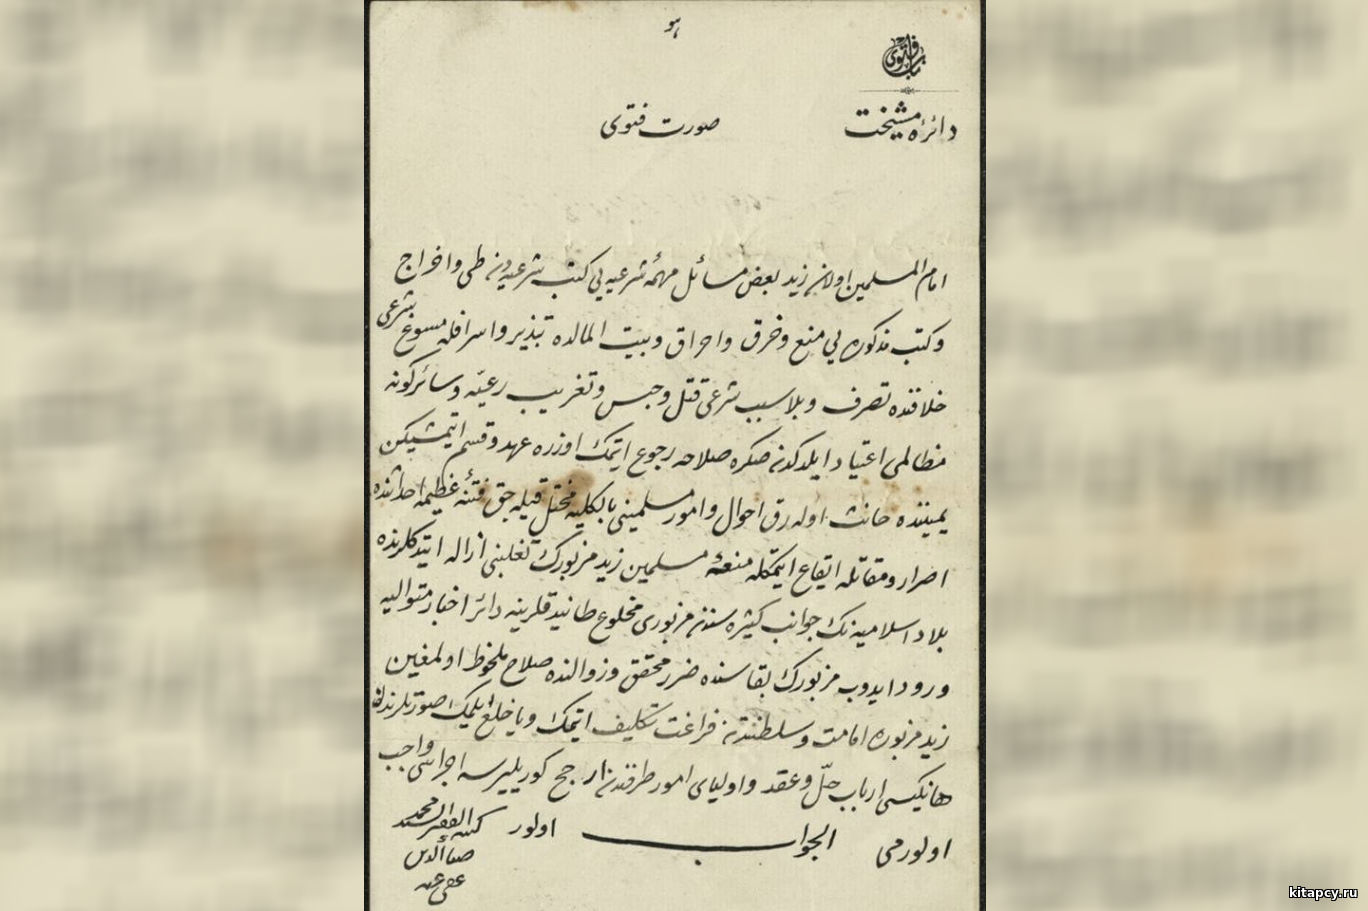 هو
باب فتوى
دائرۀ مشيخت
صورت فتوى
امام المسلمين اولان زيد بعض مسائل مهمۀ شرعيه يى كتب شرعيه دن طى واخراج
وكتب مذكوره يى منع وخرق واحراق وبيت المالده تبذير واسرافله مسوغ شرعى
خلافنده تصرف وبلا سبب شرعى قتل وحبس وتغريب رعيه وسائر كونه
مظالمى اعتياد ايلدكدن صكره صلاحه رجوع ايتمك اوزره عهد وقسم ايتمشيكن
يميننده حانث اوله رق احوال وامور مسلمينى بالكليه مختل قيله جق فتنۀ عظيمه احداثنده
اصرار ومقاتله ايقاع ايتمكله منعۀ مسلمين زيد مزبورك تغلبنى ازاله ايتدكلرنده
بلاد اسلاميه نك جوانب كثيره سندن مزبورى مخلوع طانيدقلرينه دائر اخبار متواليه
ورود ايدوب مزبورك بقاسنده ضرر محقق وزوالنده صلاح ملحوظ اولمغين
زيد مزبوره امامت وسلطنتدن فراغت تكليف ايتمك وياخلع ايلمك صورتلرندن
هانكيسى ارباب حلّ وعقد واولياى امور طرفندن ارجح كوريليرسه اجراسى واجب
اولورمى الجواب اولور
كتبه الفقير السيد محمد
ضياءالدين
عفى عنه
kitapcy.ru